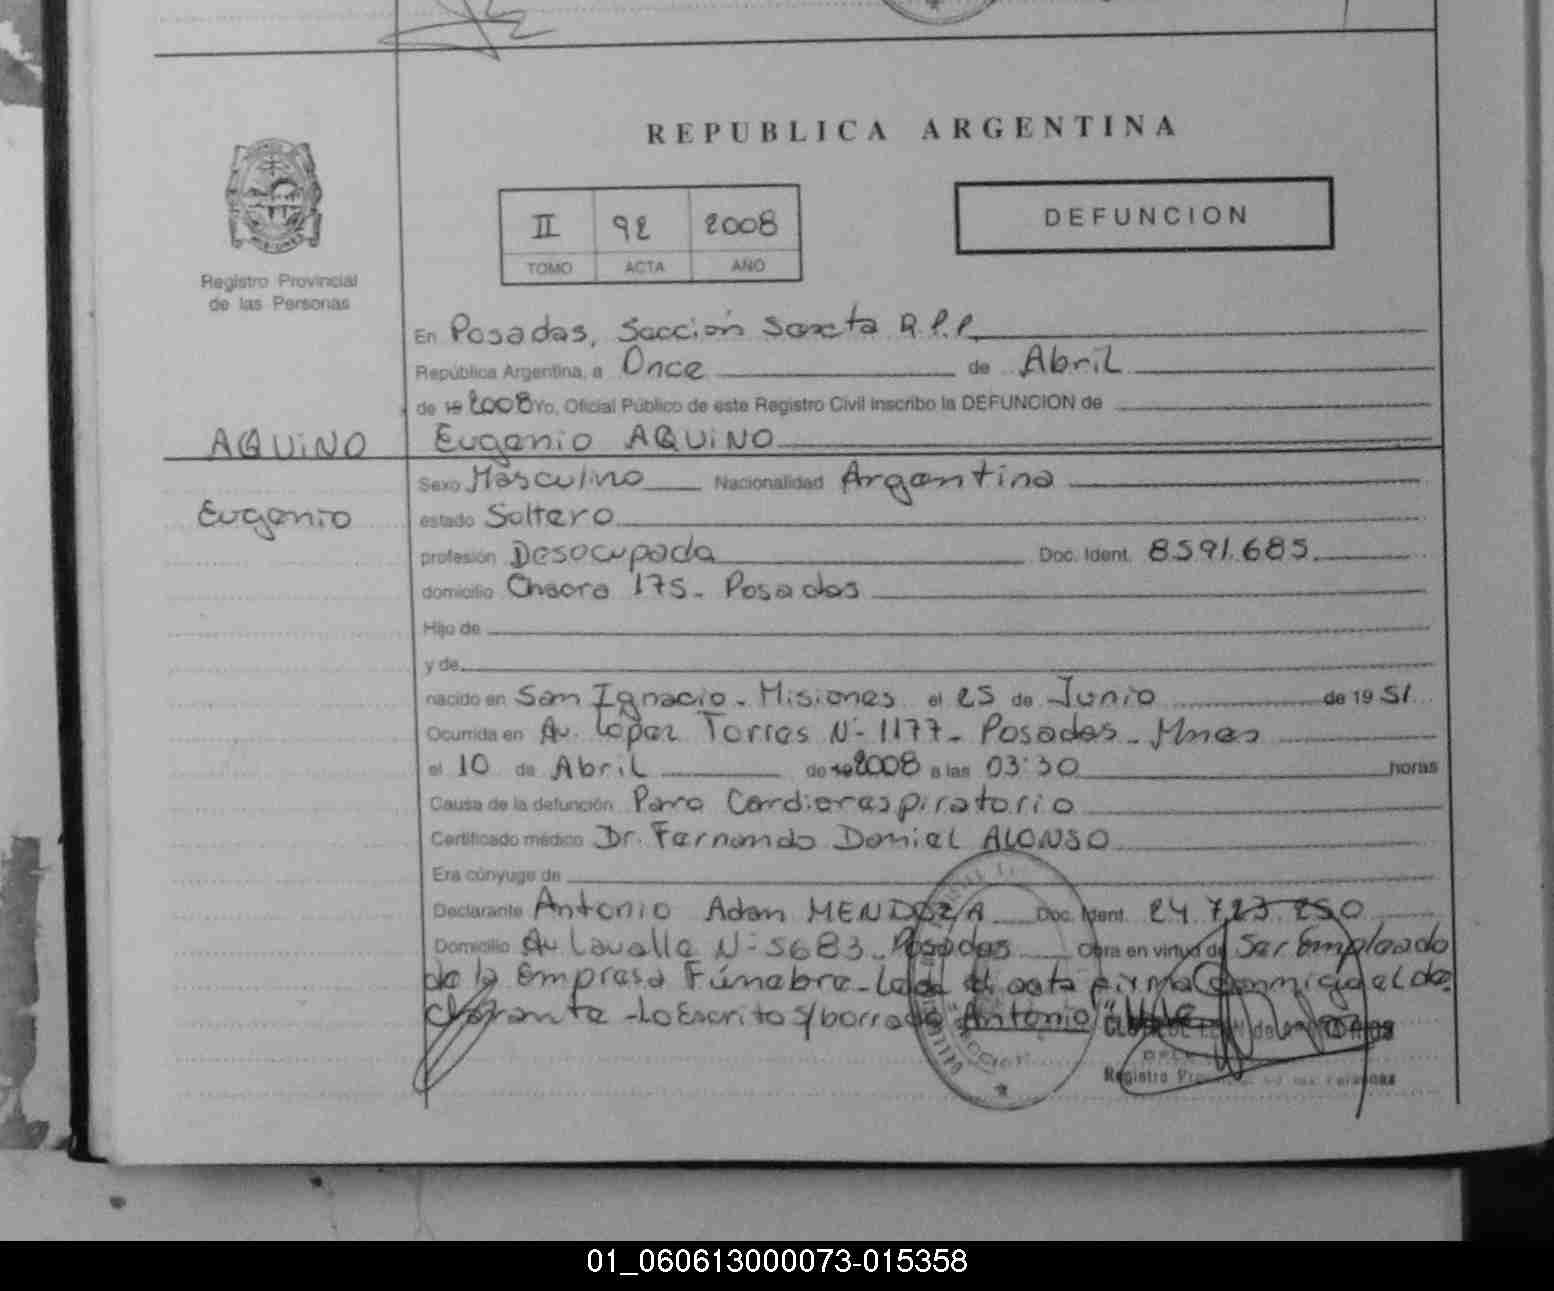 REPUBLICA ARGENTINA
II 92 2008
TOMO ACTA AÑO
DEFUNCION
Registro Provincial
de las Personas
En Posadas, Sección Sexta R.P.P.
República Argentina, a Once de Abril
de 19 2008 Yo, Oficial Público de este Registro Civil inscribo la DEFUNCION de
AQUINO Eugenio AQUINO
Sexo Masculino Nacionalidad Argentina
Eugenio estado Soltero
profesión Desocupada Doc. Ident. 8591.685
domicilio Chacra 175- Posadas
Hijo de
y de
nacido en San Ignacio- Misiones el 25 de Junio de 19 51
Ocurrida en Av. López Torres Nº 1177- Posadas- Mnes
el 10 de Abril de 19 2008 a las 03:30 horas
Causa de la defunción Paro Cardiorespiratorio
Certificado médico Dr. Fernando Daniel ALONSO
Era cónyuge de
Declarante Antonio Adan MENDOZA Doc. Ident. 24.723.250
Domicilio Av Lavalle Nº 5683- Posadas Obra en virtud de Ser Empleado
de la Empresa Fúnebre- Leda el acta firma Conmigo el de-
clarante -lo Escrito s/borrado "Antonio" Vale
Registro
01_060613000073-015358